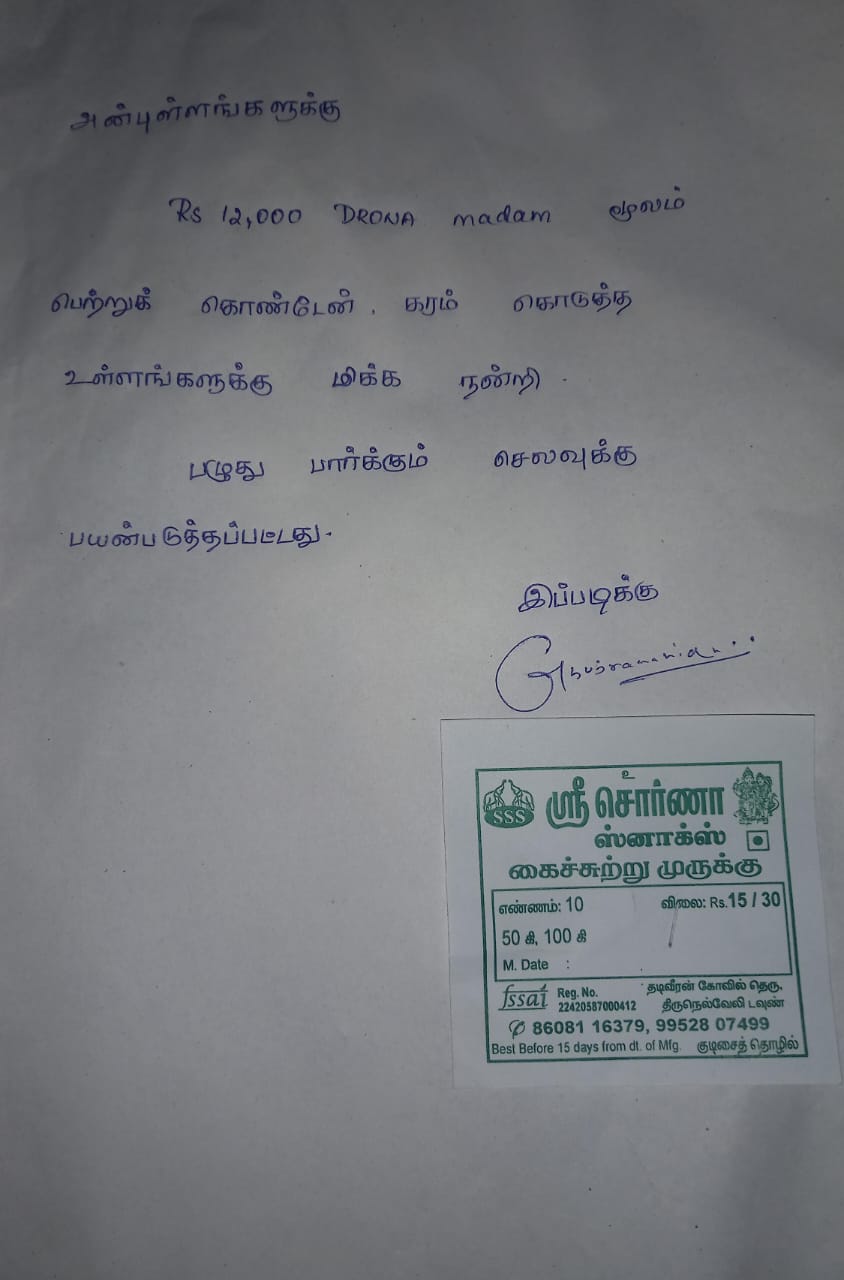 அன்புள்ளங்களுக்கு
Rs 12,000 DRONA madam மூலம்
பெற்றுக் கொண்டேன். கரம் கொடுத்த
உள்ளங்களுக்கு மிக்க நன்றி.
பழுது பார்க்கும் செலவுக்கு
பயன்படுத்தப்பட்டது.
இப்படிக்கு
உ
SSS ஸ்ரீ சொர்ணா
ஸ்னாக்ஸ்
கைச்சுற்று முருக்கு
எண்ணம்: 10 விலை: Rs.15 / 30
50 கி, 100 கி
M. Date :
fssai Reg. No. 22420587000412
தடிவீரன் கோவில் தெரு,
திருநெல்வேலி டவுண்
✆ 86081 16379, 99528 07499
Best Before 15 days from dt. of Mfg. குடிசைத் தொழில்